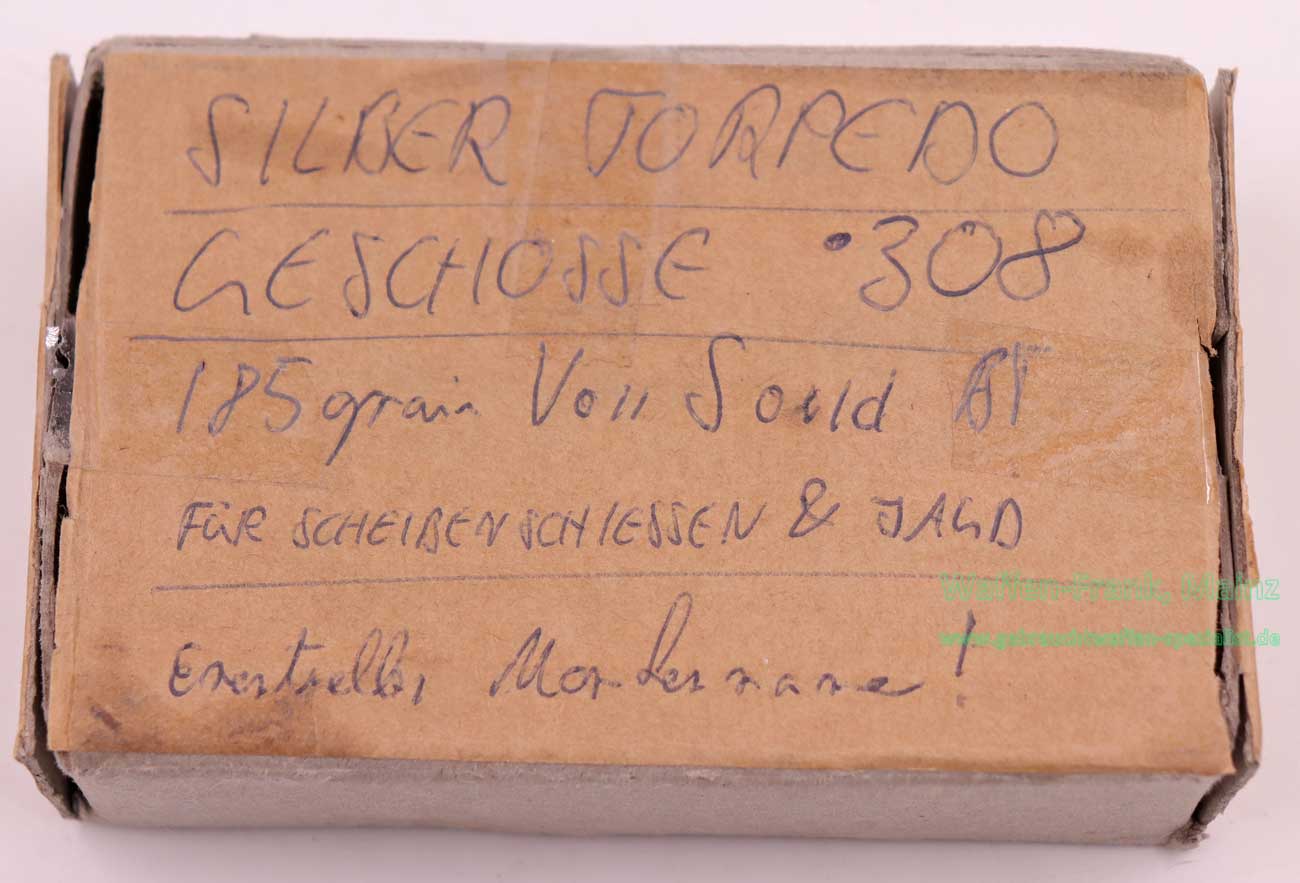 SILBER TORPEDO
GESCHOSSE .308
185 grain Voll Solid BT
FÜR SCHEIBENSCHIESSEN & JAGD
Waffen-Frank, Mainz
www.gebrauchtwaffen-spezialist.de
!